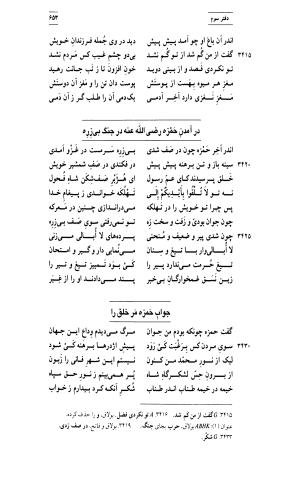 دفتر سوم
۶۵۳
اندر آن باغ او چو آمد پیش پیش
دید در وی جُمله فرزندانِ خویش
۳۴۱۵
گفت از من گم شد از تو گُم نشد
بی‌دو چشمِ غیب کس مردم نشد
تو نکردی فصد و از بینی دوید
خونِ افزون تا ز تَب جانت رهید
مغزِ هر میوه بِهَست از پوستش
پوست دان تن را و مَغز آن دوستش
مَغزِ نَغزی دارد آخِر آدمی
یک‌دمی آن را طلب گر زآن دَمی
در آمدنِ حَمْزَه رَضِیَ اللّه عَنه در جنگ بی‌زِرِه
اندر آخِر حَمْزه چون در صَف شدی
بی‌زِرِه سَرمست در غَزْو آمدی
۳۴۲۰
سینه باز و تن برهنه پیش پیش
در فکندی در صَفِ شمشیر خویش
خَلق پرسیدند کای عَمِّ رسول
ای هُزَبرِ صَف‌شکَن شاهِ فُحول
نه تو لا تُلْقُوا بِأَیْدِیکُمْ إِلَی
تَهلُکَه خواندی ز پیغامِ خدا
پس چرا تو خویش را در تَهلُکه
می‌دراندازی چنین در معرکه
چون جوان بودی و زَفت و سخت‌زِه
تو نمی‌رفتی سویِ صَف بی‌زِرِه
۳۴۲۵
چون شدی پیر و ضعیف و مُنحنی
پرده‌های لا اُبالی می‌زنی
لا اُبالی‌وار با تیغ و سِنان
می‌نُمایی دار و گیر و امتحان
تیغ حُرمت می‌ندارد پیر را
کِیْ بُوَد تَمییز تیغ و تیر را
زین نَسَق غمخوارگانِ بی‌خبر
پند می‌دادند او را از غِیَر
جوابِ حَمزه مَر خَلق را
گفت حَمزه چونکه بودم من جوان
مرگ می‌دیدم وداعِ این جهان
۳۴۳۰
سویِ مردن کس بِرَغبت کَیْ رَوَد
پیشِ اژدرها برهنه کَیْ شود
لیک از نورِ محمّد من کنون
نیستم این شهرِ فانی را زَبون
از برونِ حِسّ لشکرگاهِ شاه
پُر همی‌بینم ز نورِ حق سپاه
خیمه در خیمه طناب اندر طناب
شُکرِ آنکه کرد بیدارم ز خواب
۳۴۱۵ G گفت از من کم شد. ۳۴۱۶ A تو نکردی فصل. بولاق، و را حذف کرده.
عنوان (۱): ABHK بولاق، حرب بجای جنگ. ۳۴۱۹. بولاق و فاتح، در صف زدی.
۳۴۳۳. G شکر.